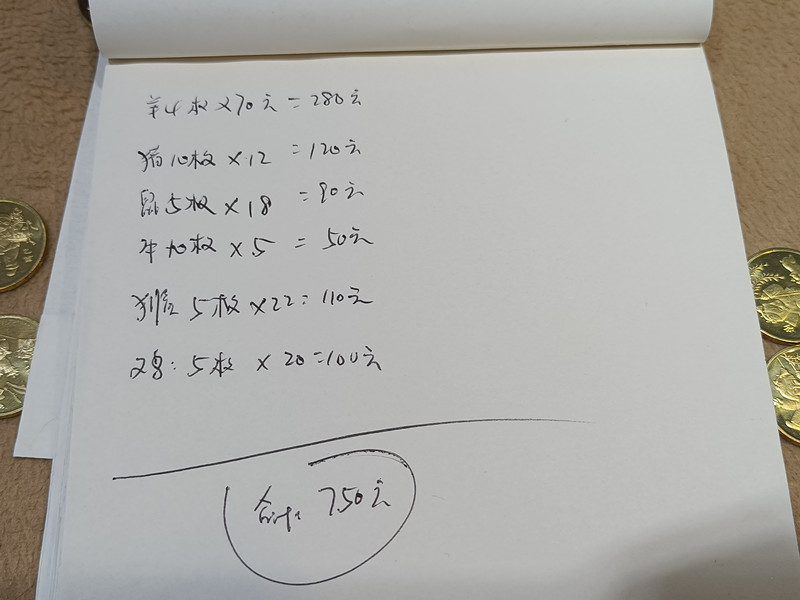 羊4枚×70元=280元
猪10枚×12=120元
鼠5枚×18=90元
牛10枚×5=50元
猴5枚×22=110元
鸡:5枚×20=100元
合计:750元